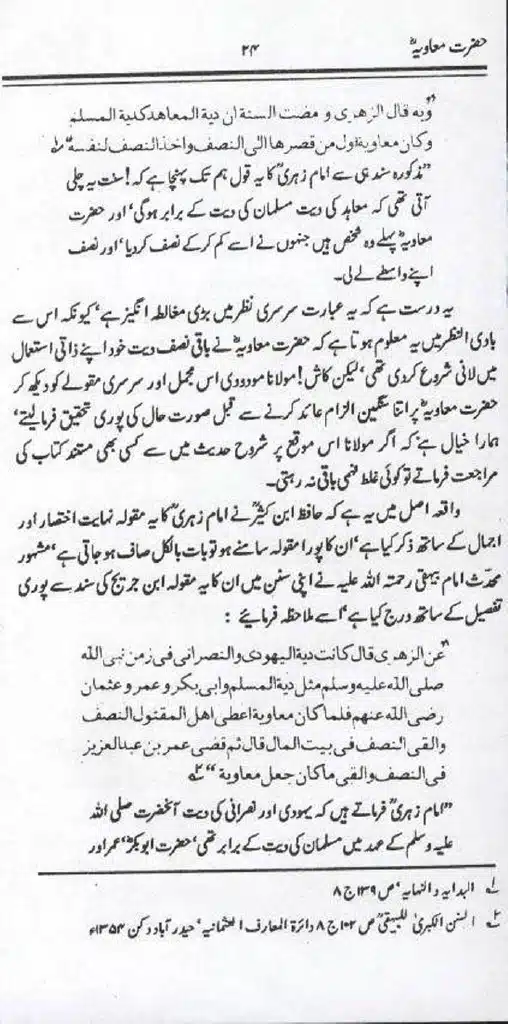 حضرت معاویہؓ
۲۴
"وبه قال الزهری و مضت السنة ان دیة المعاهد کدیة المسلم
وکان معاویة اول من قصرها الی النصف واخذ النصف لنفسه"۱
"مذکورہ سند ہی سے امام زہریؒ کا یہ قول ہم تک پہنچا ہے کہ! سنت یہ چلی
آتی تھی کہ معاہد کی دیت مسلمان کی دیت کے برابر ہوگی' اور حضرت
معاویہؓ پہلے وہ شخص ہیں جنہوں نے اسے کم کرکے نصف کردیا' اور نصف
اپنے واسطے لے لی۔
یہ درست ہے کہ یہ عبارت سرسری نظر میں بڑی مغالطہ انگیز ہے' کیونکہ اس سے
بادی النظر میں یہ معلوم ہوتا ہے کہ حضرت معاویہؓ نے باقی نصف دیت خود اپنے ذاتی استعمال
میں لانی شروع کردی تھی' لیکن کاش! مولانا مودودی اس مجمل اور سرسری مقولے کو دیکھ کر
حضرت معاویہؓ پر اتنا سنگین الزام عائد کرنے سے قبل صورت حال کی پوری تحقیق فرمالیتے'
ہمارا خیال ہے کہ اگر مولانا اس موقع پر شروح حدیث میں سے کسی بھی مستند کتاب کی
مراجعت فرماتے تو کوئی غلط فہمی باقی نہ رہتی۔
واقعہ اصل میں یہ ہے کہ حافظ ابن کثیرؒ نے امام زہریؒ کا یہ مقولہ نہایت اختصار اور
اجمال کے ساتھ ذکر کیا ہے' ان کا پورا مقولہ سامنے ہو تو بات بالکل صاف ہو جاتی ہے' مشہور
محدث امام بیہقی رحمتہ اللہ علیہ نے اپنی سنن میں ان کا یہ مقولہ ابن جریج کی سند سے پوری
تفصیل کے ساتھ درج کیا ہے' اسے ملاحظہ فرمائیے :
"عن الزهری قال کانت دیة الیهودی والنصرانی فی زمن نبی الله
صلی الله علیه وسلم مثل دیة المسلم وابی بکر و عمر و عثمان
رضی الله عنهم فلما کان معاویة اعطی اهل المقتول النصف
والقی النصف فی بیت المال قال ثم قضی عمر بن عبدالعزیز
فی النصف والقی ما کان جعل معاویة"۲
"امام زہریؒ فرماتے ہیں کہ یہودی اور نصرانی کی دیت آنحضرت صلی اللہ
علیہ وسلم کے عہد میں مسلمان کی دیت کے برابر تھی' حضرت ابوبکرؓ' عمر اور
۱ البدایہ و النہایہ' ص ۱۳۹ ج ۸
۲ السنن الکبریٰ للبیہقیؒ ص ۱۰۲ ج ۸ دائرۃ المعارف العثمانیہ' حیدر آباد دکن ۱۳۵۴ء